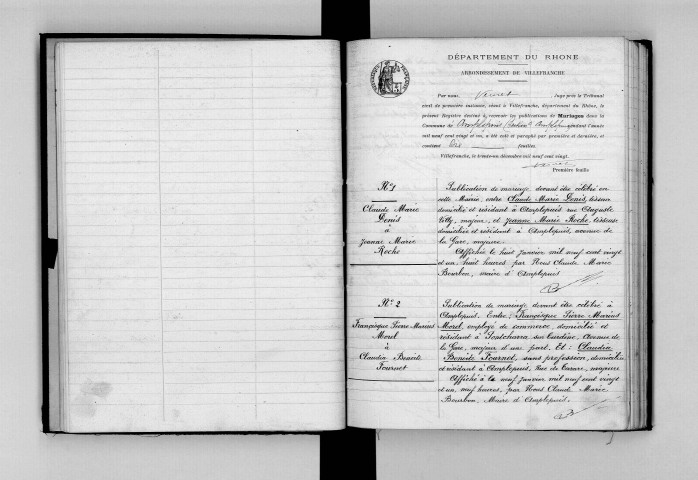 DÉPARTEMENT DU RHONE
ARRONDISSEMENT DE VILLEFRANCHE
Par nous, Juge près le Tribunal
civil de première instance, séant à Villefranche, département du Rhône, le
présent Registre destiné à recevoir les publications de Mariages dans la
Commune de Amplepuis pendant l'année
mil neuf cent vingt et un, a été coté et paraphé par première et dernière, et
contient Dix feuilles.
Villefranche, le trente-un décembre mil neuf cent vingt.
Première feuille
N° 1
Claude Marie
Denis
à
Jeanne Marie
Roche
Publication de mariage devant être célébré en
cette Mairie, entre Claude Marie Denis, tisseur
domicilié et résidant à Amplepuis rue Auguste
Villy, majeur, et Jeanne Marie Roche, tisseuse
domiciliée et résidant à Amplepuis, avenue de
la Gare, majeure.
Affichée le huit janvier mil neuf cent vingt
et un, huit heures, par Nous Claude Marie
Bourbon, maire d'Amplepuis
N° 2
Françisque Pierre Marius
Morel
à
Claudia Benoite
Fournet
Publication de mariage devant être célébré à
Amplepuis. Entre: Françisque Pierre Marius
Morel, employé de commerce, domicilié et
résidant à Pontcharra sur Turdine, Avenue de
la Gare, majeur d'un part. Et: Claudia
Benoite Fournet, sans profession, domiciliée
et résidant à Amplepuis, Rue de Tarare, majeure
Affiché à le neuf janvier mil neuf cent vingt
et un, neuf heures, par Nous Claude Marie
Bourbon, Maire d'Amplepuis.